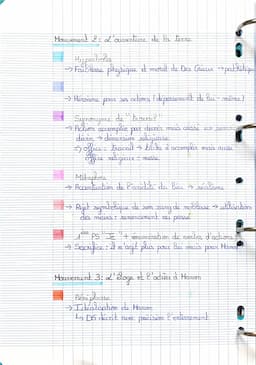 Mouvement 2: L'ouverture de la terre
Hyperbole
→ Faiblesse physique et moral de Des Grieux → pathétique
→ Héroïsme par ses actions (dépassement de lui-même)
Synonyme de "travail"
→ Action accomplie par devoir mais aussi
divin → dimension religieuse
→ office: travail → tâche à accomplir mais aussi
office religieux: messe
Métaphore
→ Accentuation de l'aridité du lieu → réalisme
→ Rejet symbolique de son rang de noblesse → utilisation
des mains: renoncement au passé
PS "Je" + énumération de verbes d'actions
→ Sacrifice: il n'agit plus pour lui mais pour Manon
Mouvement 3: L'éloge et l'adieu à Manon
Périphrase
→ Idéalisation de Manon
↳ DG décrit avec précision l'enterrement